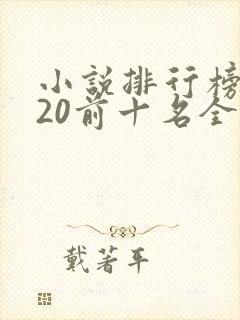 小説排行榜
20前十名全
戴著平